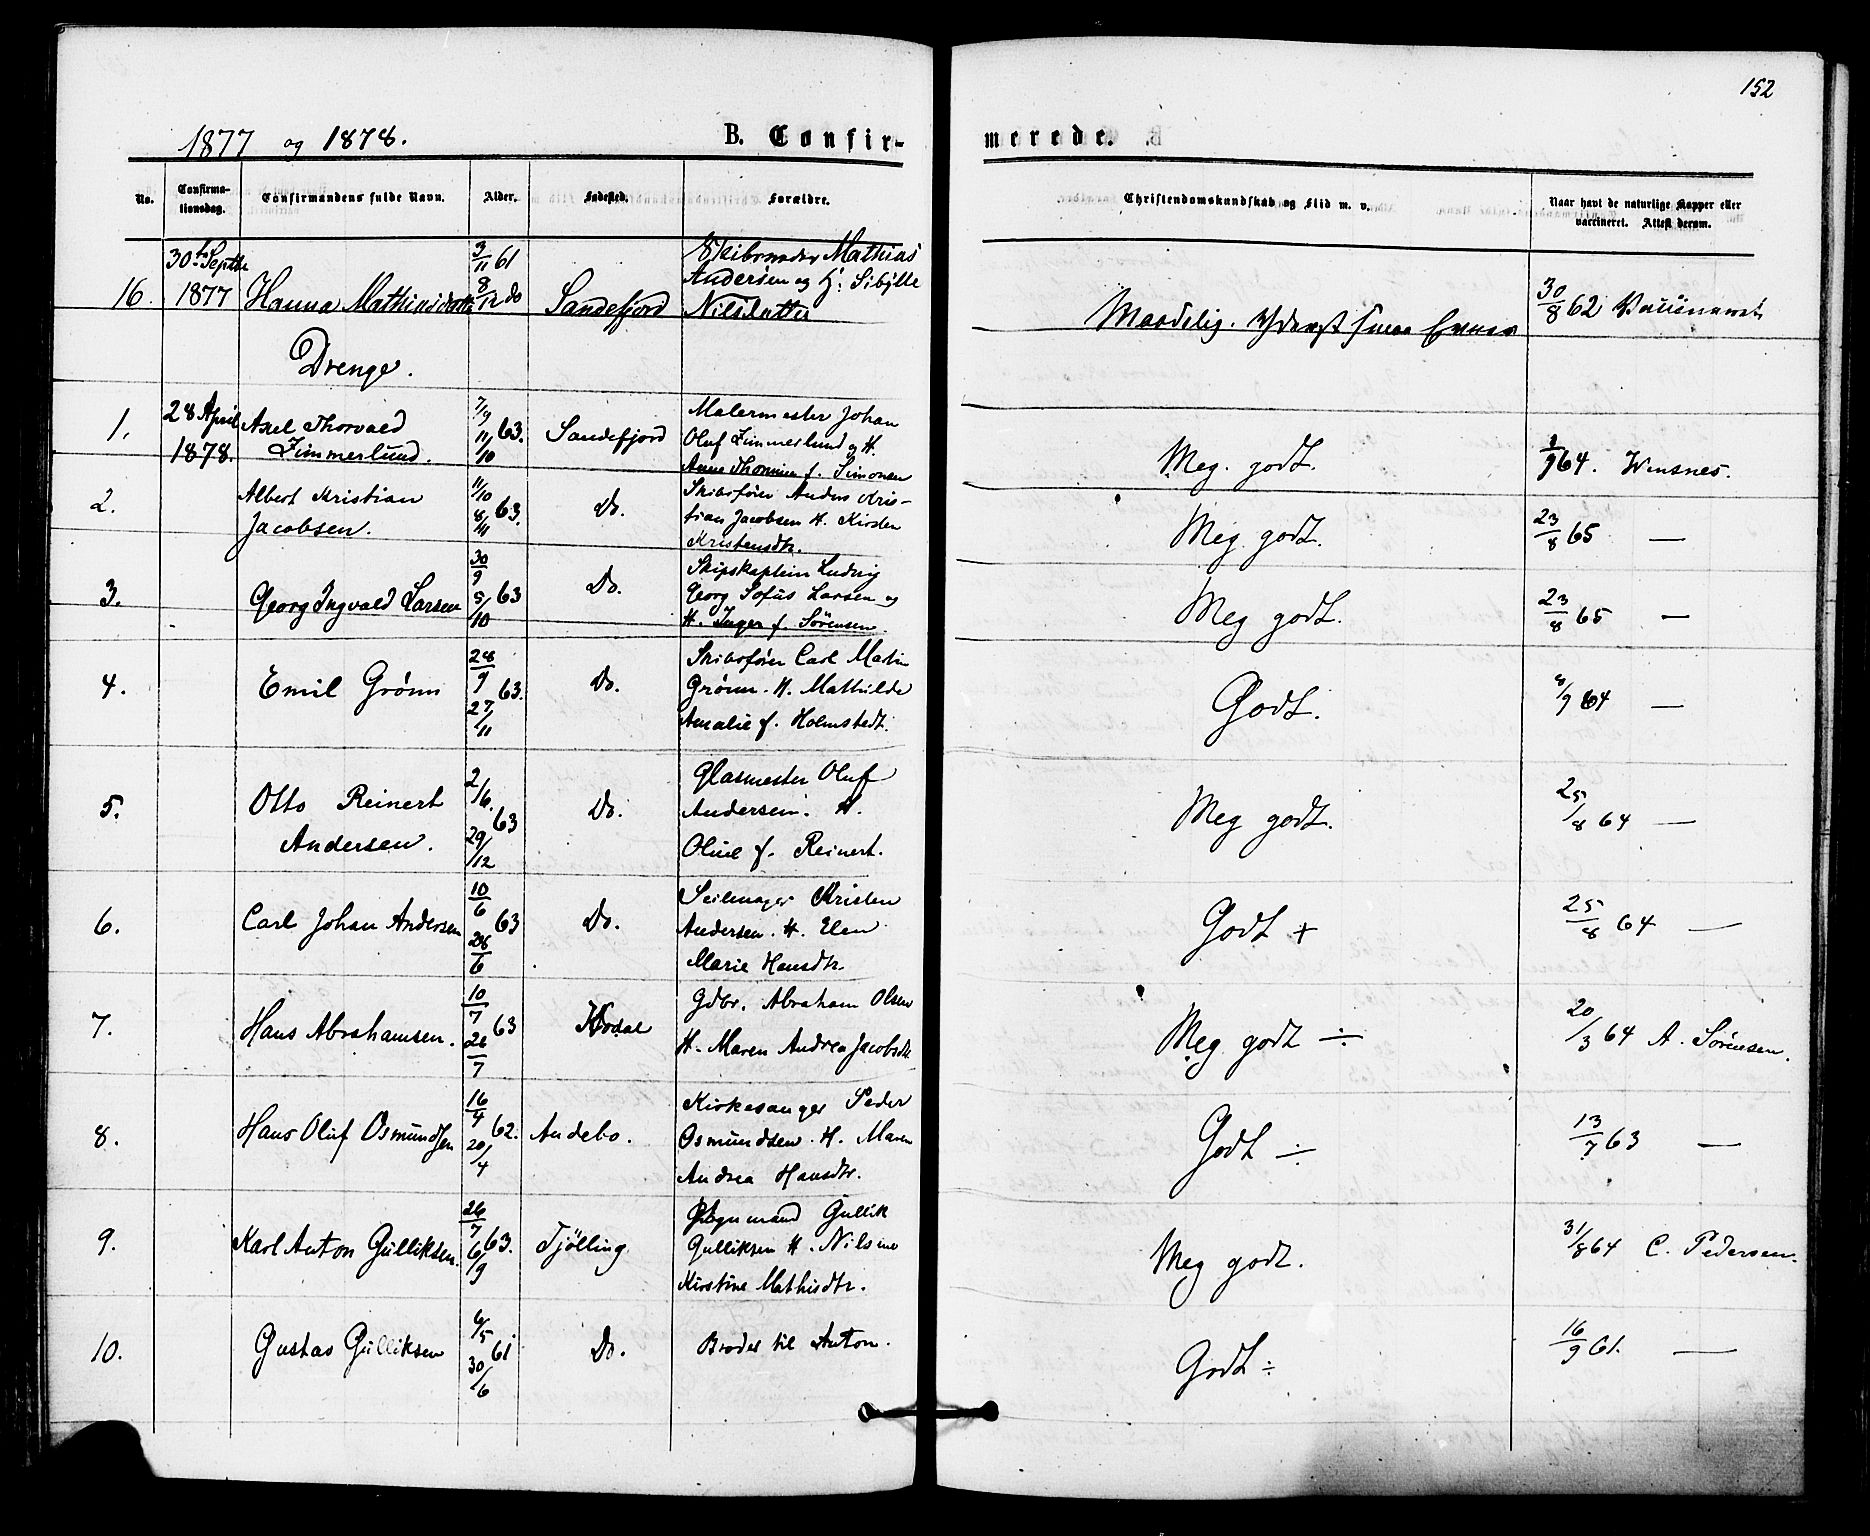 152
1877 og 1878.
B. Confir-
merede.
No.
Confirma-
tionsdag.
Confirmandens fulde Navn.
Alder.
Fødested.
Forældre.
Christendomskundskab og Flid m. v.
Naar havt de naturlige Kopper eller
vaccineret. Attest derom.
30te Septbr
1877
16.
Hanna Mathiasdatter
3/11 61
8/12 do
Sandefjord
Mathias
Andersen og H. Sibylle
Nilsdatter
Maadelig.
30/8 62
Drenge.
1.
28 April
1878.
Axel Thorvald
Zimmerlund.
7/9
11/10 63.
Sandefjord
Malermester Johan
Oluf Zimmerlund og H.
f. Simonsen
Meg. godt.
1/9 64. Wensnes.
2.
Albert Kristian
Jacobsen.
11/10
8/11 63.
Do.
Skibsfører Anders Kris-
tian Jacobsen H. Kirsten
Kristensdtr.
Meg godt.
23/8 65 —
3.
Georg Ingvald Larsen
30/9
5/10 63
Do.
Skipskaptein Ludvig
Georg Sofus Larsen og
H. Inger f. Sörensen.
Meg godt.
23/8 65 —
4.
Emil Grönn
28/9
27/11 63.
Do.
Skibsfører Carl Martin
Grönn. H. Mathilde
Amalie f. Holmstedt.
Godt.
/9 64 —
5.
Otto Reinert
Andersen.
2/6.
29/12 63
Do.
Glasmester Oluf
Andersen. H.
f. Reinert.
Meg godt.
25/8 64 —
6.
Carl Johan Andersen
10/6
28/6 63
Do.
Seilmager Kristen
Andersen. H. Elen
Marie Hansdtr.
Godt +
25/8 64 —
7.
Hans Abrahamsen.
10/7
26/7 63
Kodal
Gdbr. Abraham Olsen
H. Maren Andrea Jacobsdtr
Meg godt ÷
20/3 64 A. Sörensen.
8.
Hans Oluf Osmundsen
16/4
20/4 62.
Andebo.
Kirkesanger Peder
Osmundsen. H. Maren
Andrea Hansdtr.
Godt ÷
13/7 63 —
9.
Karl Anton Gulliksen.
26/7
6/9 63.
Tjölling.
Gullik
Gulliksen H. Nilsine
Kirstine Mathisdtr.
Meg godt.
31/8 64 C. Pedersen.
10.
Gustav Gulliksen
6/5
30/6 61
Do.
Broder til Anton.
Godt ÷
16/9 61. —